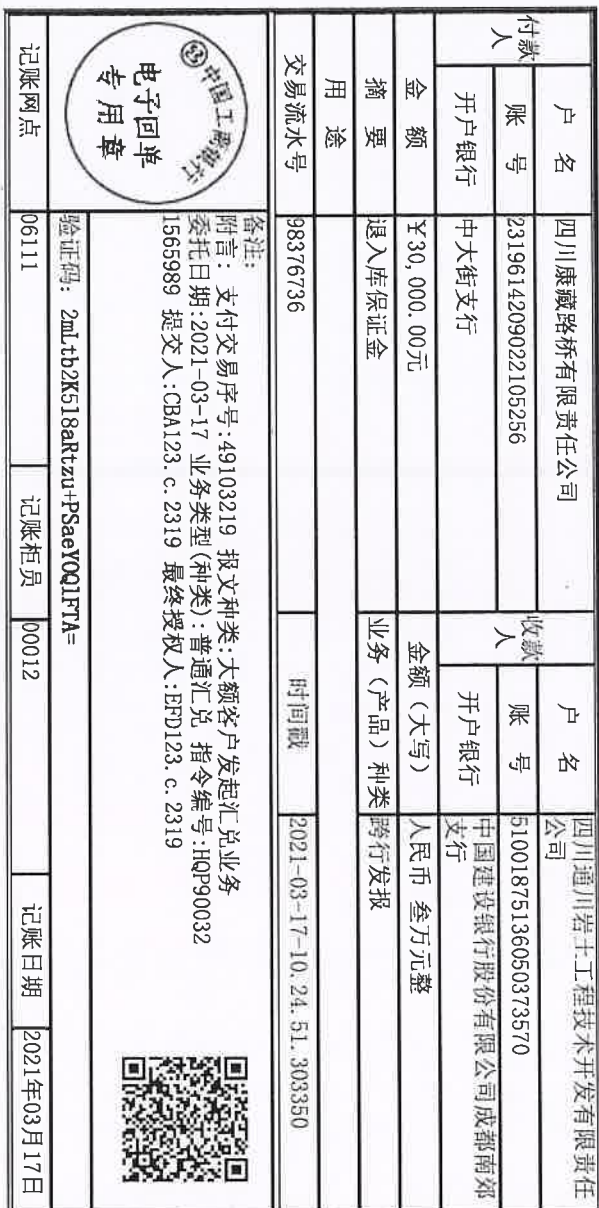 付款人 户 名 四川康藏路桥有限责任公司 收款人 户 名 四川通川岩土工程技术开发有限责任公司
账 号 2319614209022105256 账 号 51001875136050373570
开户银行 中大街支行 开户银行 中国建设银行股份有限公司成都南郊支行
金 额 ￥30,000.00元 金额（大写） 人民币 叁万元整
摘 要 退入库保证金 业务（产品）种类 跨行发报
用 途
交易流水号 98376736 时间戳 2021-03-17-10.24.51.303350
备注:
附言: 支付交易序号:49103219 报文种类:大额客户发起汇兑业务
委托日期:2021-03-17 业务类型(种类):普通汇兑 指令编号:HQP90032
1565989 提交人:CBA123.c.2319 最终授权人:EFD123.c.2319
中国工商银行
电子回单
专用章
验证码: 2mLtb2K518aRtzu+PSaeY0Q1FTA=
记账网点 06111 记账柜员 00012 记账日期 2021年03月17日